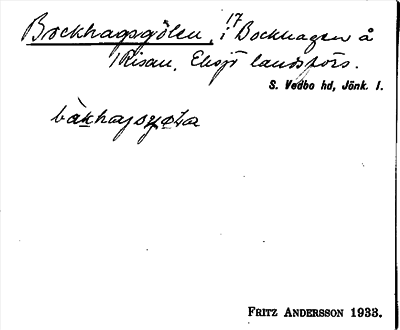 Bockhagsgölen, i 17 Bockhagen å
Risan, Eksjö landsförs.
S. Vedbo hd, Jönk. l.
FRITZ ANDERSSON 1933.